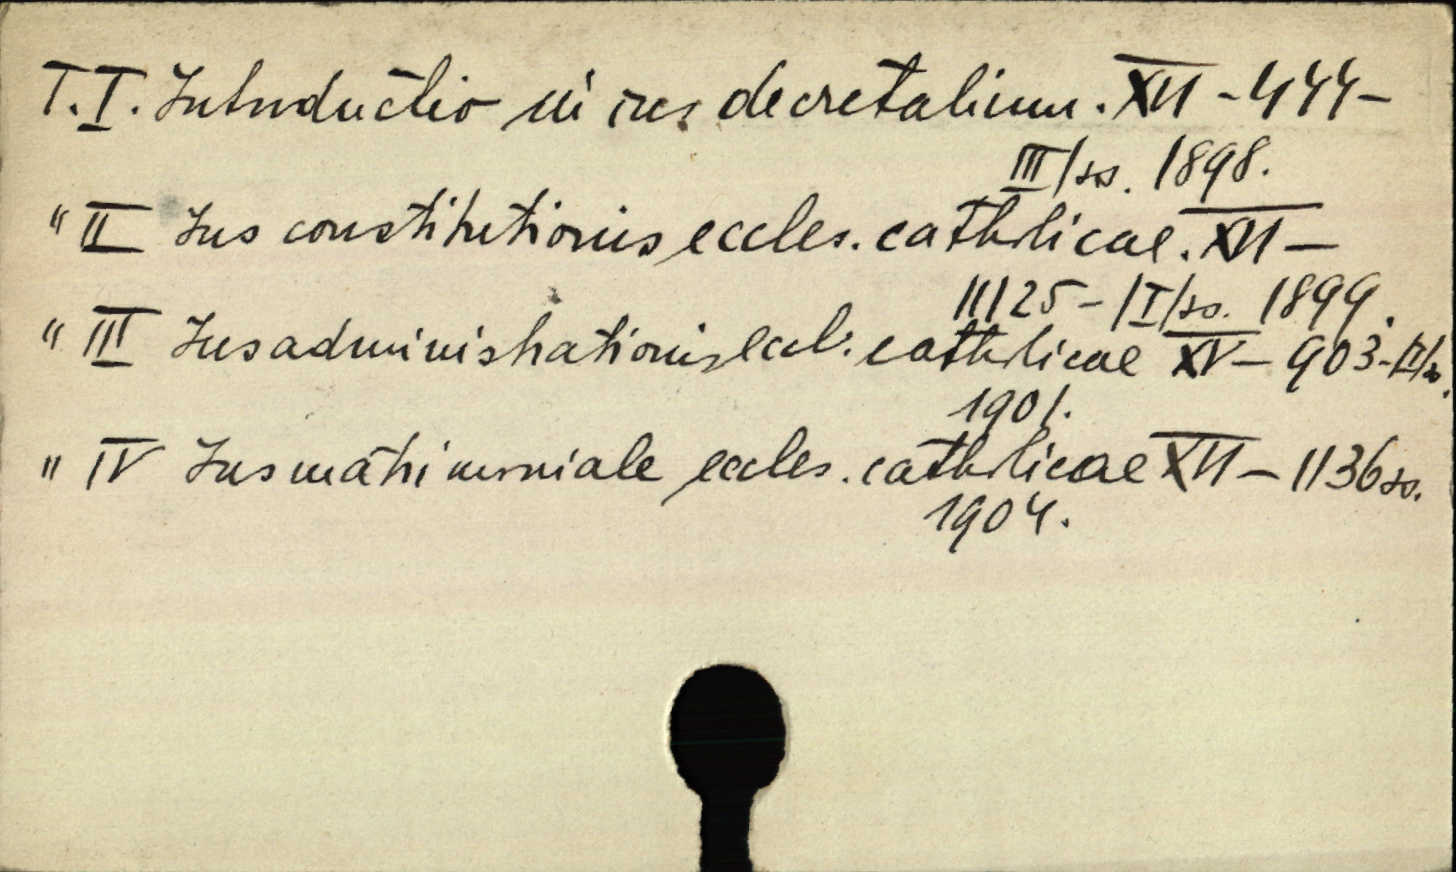 T. I. Introductio in ius decretalium. XII - 444 -
III/ss. 1898.
" II Ius constitutionis eccles. catholicae. XII -
1125 - II/ss. 1899.
" III Ius administrationis eccl. catholicae XV - 903 - II/ss.
1901.
" IV Ius matrimoniale eccles. catholicae XII - 1136 ss.
1904.